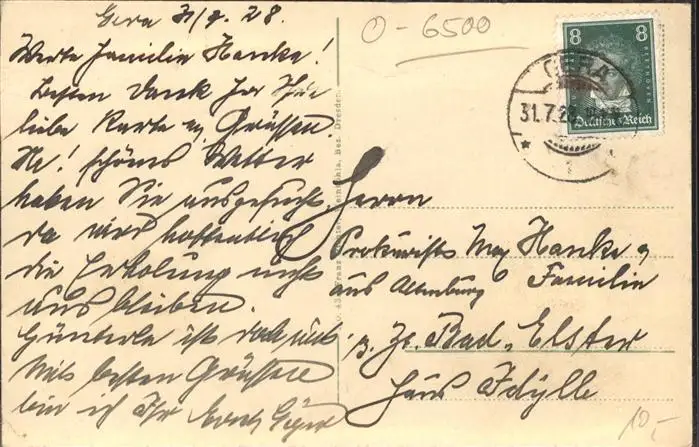 Gera 31/7. 28.
Werte Familie Hanke!
Besten Dank für Ihre
liebe Karte u. Grüssen.
Na! schönes Wetter
haben Sie ausgesucht
da wird hoffentlich
die Erholung nicht
ausbleiben.
ist doch auch
Mit besten Grüssen
bin ich Ihr
O-6500
8 8
Deutsches Reich
BEETHOVEN
GERA
31.7.28
Herrn
Prokurists Max Hanke u
aus Altenburg Familie
z. Zt. Bad, Elster
Haus Idylle
10,-